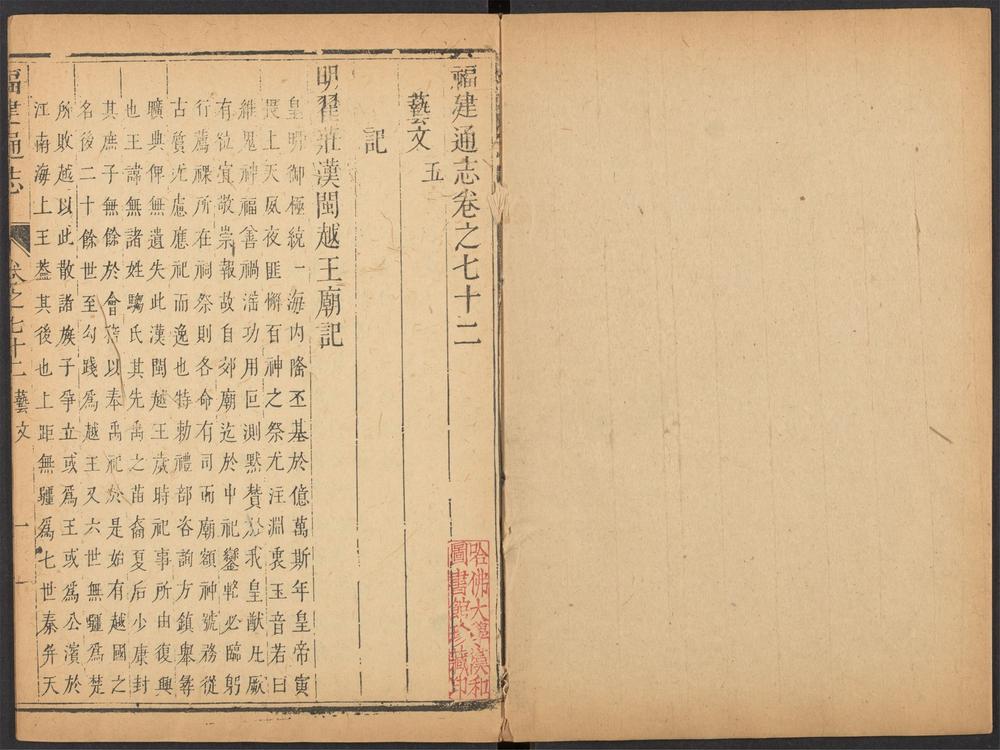 福建通志卷之七十二
藝文五
記
明翟莊漢閩越王廟記
皇明御極統一海內隆丕基於億萬斯年皇帝寅
畏上天夙夜匪懈百神之祭尤注淵衷玉音若曰
維鬼神福善禍淫功用叵測默贊於我皇猷凡厥
有位寅敬崇報故自郊廟迄於中祀鑾乾必臨躬
行薦祼所在祠祭則各命有司而廟額神號務從
古質尤慮應祀而逸也特勅禮部咨詢方鎮舉彝
曠典俾無遺失此漢閩越王歲時祀事所由復興
也王諱無諸姓騶氏其先禹之苗裔夏后少康封
其庶子無餘於會稽以奉禹祀於是始有越國之
名後二十餘世至勾踐爲越王又六世無疆爲楚
所敗越以此散諸族子爭立或爲王或爲公濱於
江南海上王蓋其後也上距無疆爲七世秦并天
福建通志
卷之七十二
藝文
一
哈佛大學漢和
圖書館珍藏印